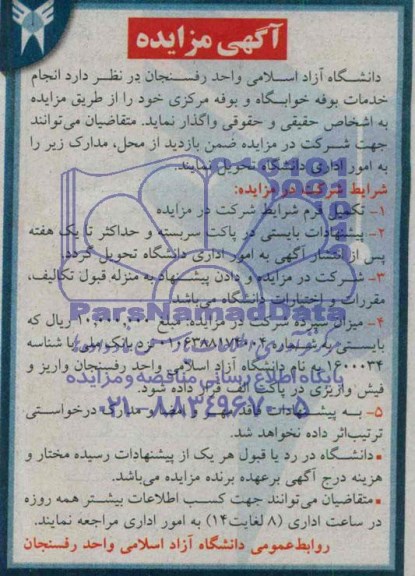 آگهی مزایده
دانشگاه آزاد اسلامی واحد رفسنجان در نظر دارد انجام
خدمات بوفه خوابگاه و بوفه مرکزی خود را از طریق مزایده
به اشخاص حقیقی و حقوقی واگذار نماید. متقاضیان می‌توانند
جهت شرکت در مزایده ضمن بازدید از محل، مدارک زیر را
به امور اداری دانشگاه تحویل نمایند.
شرایط شرکت در مزایده:
۱- تکمیل فرم شرایط شرکت در مزایده
۲- پیشنهادات بایستی در پاکت سربسته و حداکثر تا یک هفته
پس از انتشار آگهی به امور اداری دانشگاه تحویل گردد.
۳- شرکت در مزایده و دادن پیشنهاد به منزله قبول تکالیف،
مقررات و اختیارات دانشگاه می‌باشد.
ParsNamadData
۴- میزان سپرده شرکت در مزایده: مبلغ ۱۰,۰۰۰,۰۰۰ ریال که
بایستی به شماره نزد بانک ملی با شناسه
۱۶۰۰۰۳۴ به نام دانشگاه آزاد اسلامی واحد رفسنجان واریز و
پایگاه اطلاع رسانی مناقصه و مزایده
فیش واریزی در پاکت الف قرار داده شود.
۰۲۱-۸۸۳۴۹۶۷۰-۵
۵- به پیشنهادات فاقد مهر و امضا و مدارک درخواستی
ترتیب‌اثر داده نخواهد شد.
▪ دانشگاه در رد یا قبول هر یک از پیشنهادات رسیده مختار و
هزینه درج آگهی برعهده برنده مزایده می‌باشد.
▪ متقاضیان می‌توانند جهت کسب اطلاعات بیشتر همه روزه
در ساعت اداری (۸ لغایت۱۴) به امور اداری مراجعه نمایند.
روابط‌عمومی دانشگاه آزاد اسلامی واحد رفسنجان